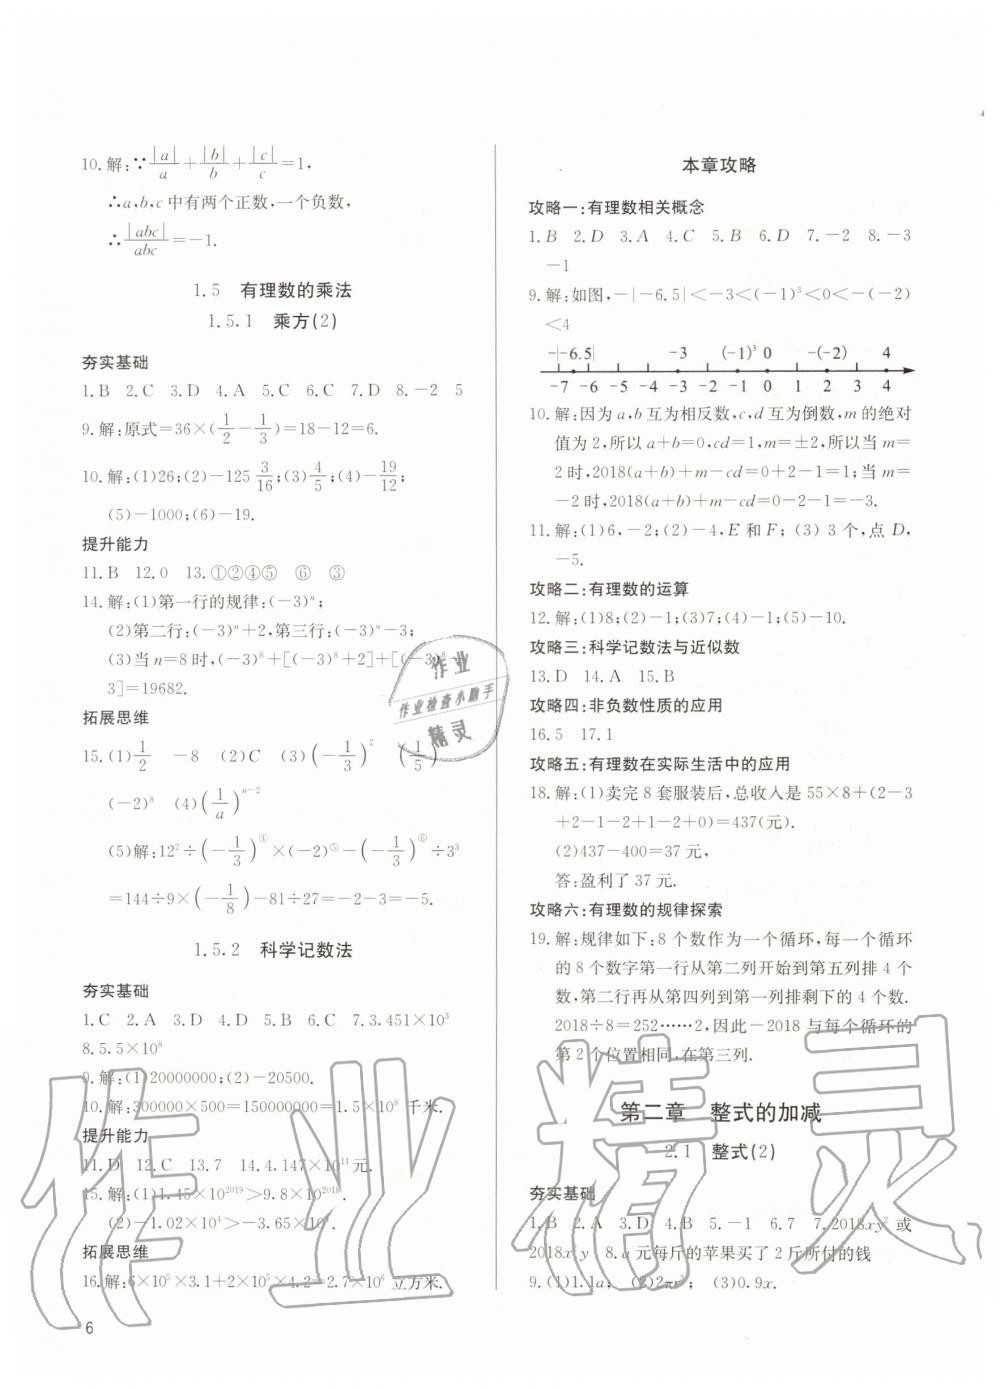 10.解:∵|a|/a+|b|/b+|c|/c=1,
∴a,b,c中有两个正数,一个负数,
∴|abc|/abc=-1.
1.5 有理数的乘法
1.5.1 乘方(2)
夯实基础
1.B 2.C 3.D 4.A 5.C 6.C 7.D 8.-2 5
9.解:原式=36×(1/2-1/3)=18-12=6.
10.解:(1)26;(2)-125 3/16;(3)4/5;(4)-19/12;
(5)-1000;(6)-19.
提升能力
11.B 12.0 13.①②④⑤ ⑥ ③
14.解:(1)第一行的规律:(-3)ⁿ;
(2)第二行:(-3)ⁿ+2,第三行:(-3)ⁿ-3;
(3)当n=8时,(-3)⁸+[(-3)⁸+2]+[(-3)⁸
3]=19682.
拓展思维
15.(1)1/2 -8 (2)C (3)(-1/3)² (1/5)
(-2)⁸ (4)(1/a)ⁿ⁻²
(5)解:12²÷(-1/3)^④×(-2)^⑤-(-1/3)^⑥÷3³
=144÷9×(-1/8)-81÷27=-2-3=-5.
1.5.2 科学记数法
夯实基础
1.C 2.A 3.D 4.D 5.B 6.C 7.3.451×10³
8.5.5×10⁸
9.解:(1)20000000;(2)-20500.
10.解:300000×500=150000000=1.5×10⁸千米.
提升能力
11.D 12.C 13.7 14.4.147×10¹¹元.
15.解:(1)1.45×10²⁰¹⁹>9.8×10²⁰¹⁸.
(2)-1.02×10⁴>-3.65×10⁵.
拓展思维
16.解:6×10⁵×3.1+2×10⁵×4.2=2.7×10⁶立方米.
6
本章攻略
攻略一:有理数相关概念
1.B 2.D 3.A 4.C 5.B 6.D 7.-2 8.-3
-1
9.解:如图,-|-6.5|<-3<(-1)³<0<-(-2)
<4
-|-6.5| -3 (-1)³ 0 -(-2) 4
-7 -6 -5 -4 -3 -2 -1 0 1 2 3 4
10.解:因为a,b互为相反数,c,d互为倒数,m的绝对
值为2,所以a+b=0,cd=1,m=±2,所以当m=
2时,2018(a+b)+m-cd=0+2-1=1;当m=
-2时,2018(a+b)+m-cd=0-2-1=-3.
11.解:(1)6,-2;(2)-4,E和F;(3)3个,点D,
-5.
攻略二:有理数的运算
12.解:(1)8;(2)-1;(3)7;(4)-1;(5)-10.
攻略三:科学记数法与近似数
13.D 14.A 15.B
攻略四:非负数性质的应用
16.5 17.1
攻略五:有理数在实际生活中的应用
18.解:(1)卖完8套服装后,总收入是55×8+(2-3
+2-1-2+1-2+0)=437(元).
(2)437-400=37元,
答:盈利了37元.
攻略六:有理数的规律探索
19.解:规律如下:8个数作为一个循环,每一个循环
的8个数字第一行从第二列开始到第五列排4个
数,第二行再从第四列到第一列排剩下的4个数.
2018÷8=252……2,因此-2018与每个循环的
第2个位置相同,在第三列.
第二章 整式的加减
2.1 整式(2)
夯实基础
1.B 2.A 3.D 4.B 5.-1 6.7 7.2018xy²或
2018x²y 8.a元每斤的苹果买了2斤所付的钱
9.(1)1.1a; (2)2πr²; (3)0.9x.
作业
作业检查小助手
精灵
作业精灵